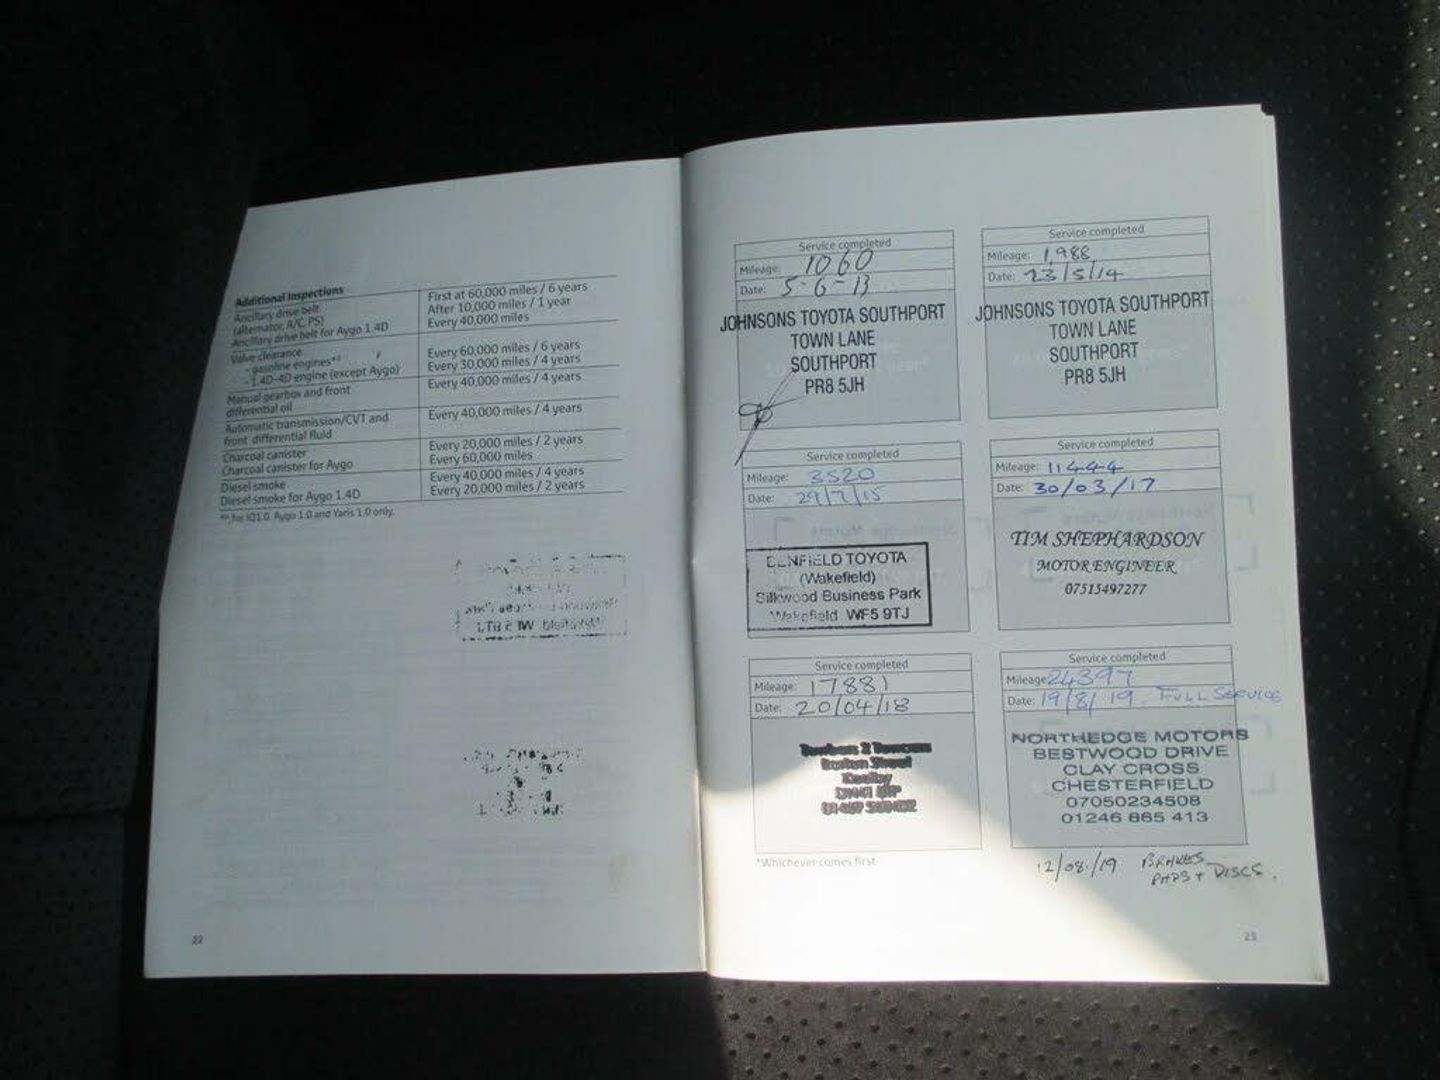 Additional Inspections
Ancillary drive belt
(alternator, A/C, PS)
Ancillary drive belt for Aygo 1.4D
First at 60,000 miles / 6 years
After 10,000 miles / 1 year
Every 40,000 miles
Valve clearance
- gasoline engines**
- 1.4D-4D engine (except Aygo)
Every 60,000 miles / 6 years
Every 30,000 miles / 4 years
Manual gearbox and front
differential oil
Every 40,000 miles / 4 years
Automatic transmission/CVT and
front differential fluid
Every 40,000 miles / 4 years
Charcoal canister
Charcoal canister for Aygo
Every 20,000 miles / 2 years
Every 60,000 miles
Diesel smoke
Diesel smoke for Aygo 1.4D
Every 40,000 miles / 4 years
Every 20,000 miles / 2 years
** for IQ1.0, Aygo 1.0 and Yaris 1.0 only.
22
Service completed
Mileage: 1060
Date: 5-6-13
JOHNSONS TOYOTA SOUTHPORT
TOWN LANE
SOUTHPORT
PR8 5JH
Service completed
Mileage: 1,988
Date: 23/5/14
JOHNSONS TOYOTA SOUTHPORT
TOWN LANE
SOUTHPORT
PR8 5JH
Service completed
Mileage: 3520
Date: 29/7/15
BENFIELD TOYOTA
(Wakefield)
Silkwood Business Park
Wakefield WF5 9TJ
Service completed
Mileage: 11444
Date: 30/03/17
TIM SHEPHARDSON
MOTOR ENGINEER
07515497277
Service completed
Mileage: 17881
Date: 20/04/18
Street
Service completed
Mileage: 24397
Date: 19/8/19. FULL SERVICE
NORTHEDGE MOTORS
BESTWOOD DRIVE
CLAY CROSS
CHESTERFIELD
07050234508
01246 865 413
*Whichever comes first
12/08/19 BRAKES
PADS + DISCS.
23